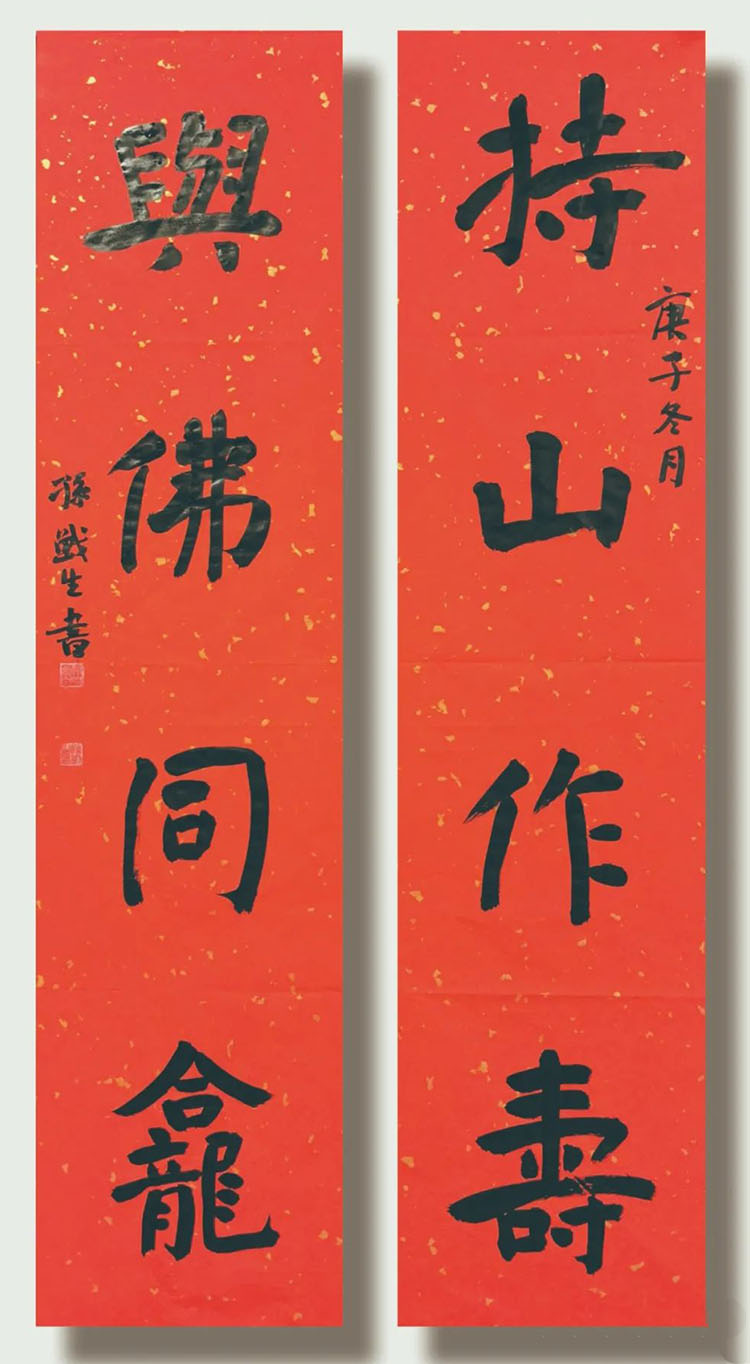 持山作壽
庚子冬月
與佛同龕
孫戰生書